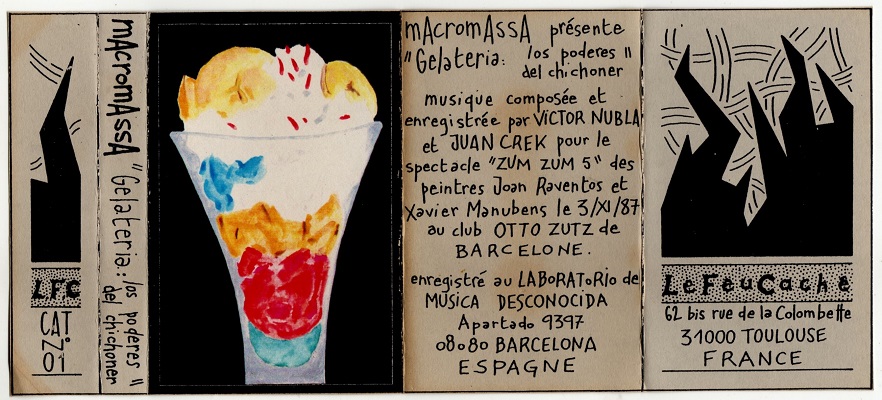 LFC
CAT
Nº
01
mAcromAssA "Gelateria: los poderes "
del chichoner
mAcromAssA présente
"Gelateria: los poderes "
del chichoner
musique composée et
enregistrée par VÍCTOR NUBLA
et JUAN CREK pour le
spectacle "ZUM ZUM 5" des
peintres Joan Raventos et
Xavier Manubens le 3/XI/87
au club OTTO ZUTZ de
BARCELONE.
enregistré au LABORATORIO de
MÚSICA DESCONOCIDA
Apartado 9397
08080 BARCELONA
ESPAGNE
LeFeuCaché
62 bis rue de la Colombette
31000 TOULOUSE
FRANCE